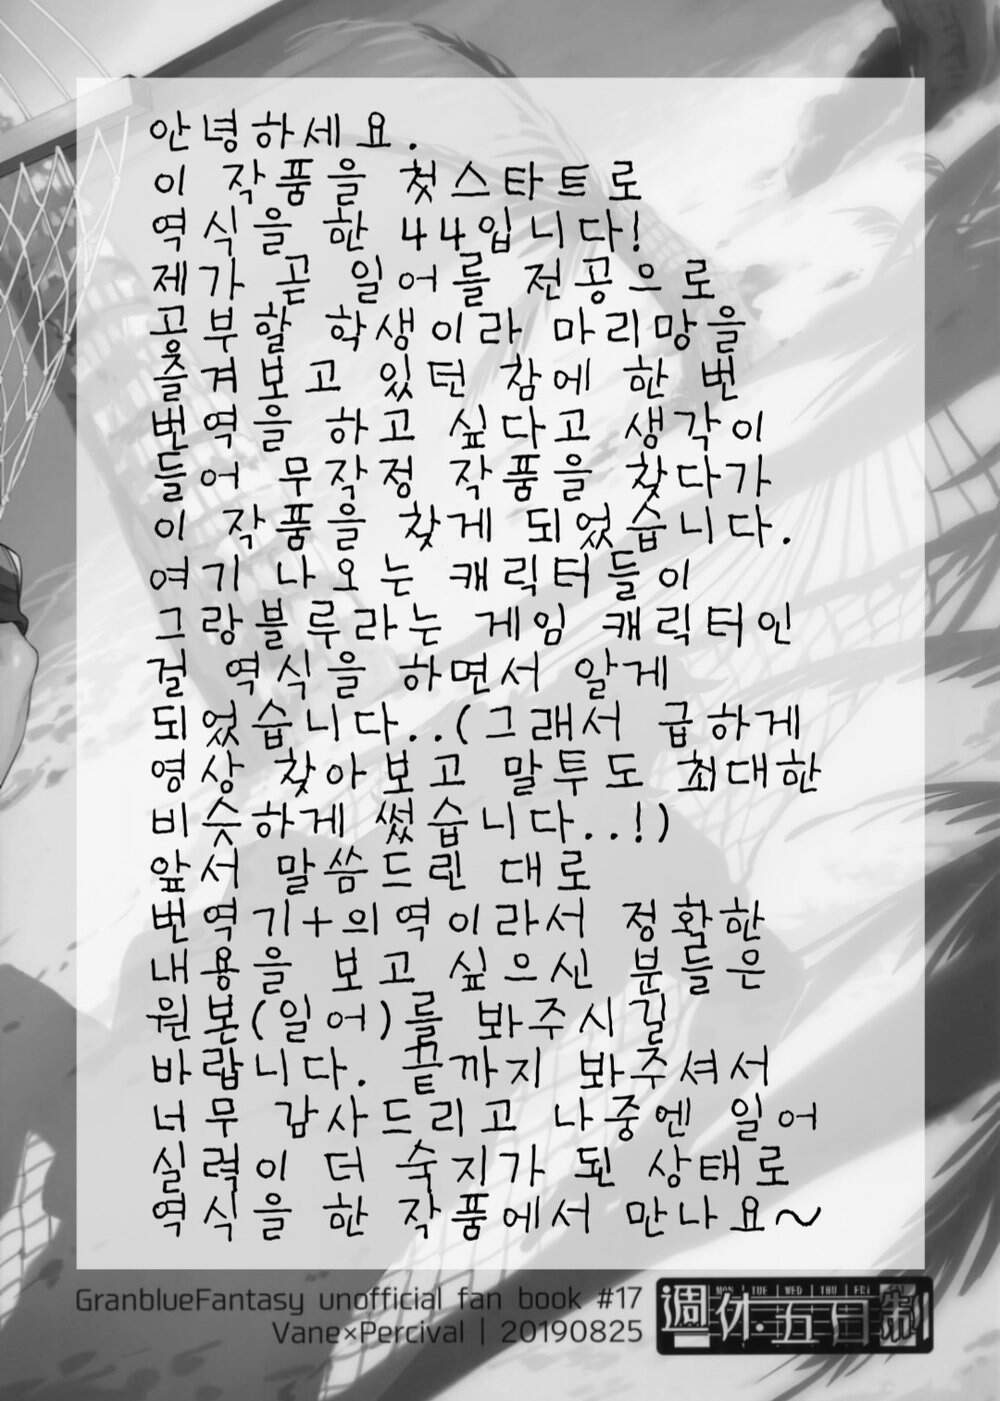 안녕하세요.
이 작품을 첫스타트로
역식을 한 44입니다!
제가 곧 일어를 전공으로
공부할 학생이라 마리망을
즐겨보고 있던 참에 한 번
번역을 하고 싶다고 생각이
들어 무작정 작품을 찾다가
이 작품을 찾게 되었습니다.
여기 나오는 캐릭터들이
그랑블루라는 게임 캐릭터인
걸 역식을 하면서 알게
되었습니다..(그래서 급하게
영상 찾아보고 말투도 최대한
비슷하게 썼습니다..!)
앞서 말씀드린 대로
번역기+의역이라서 정확한
내용을 보고 싶으신 분들은
원본(일어)를 봐주시길
바랍니다. 끝까지 봐주셔서
너무 감사드리고 나중엔 일어
실력이 더 숙지가 된 상태로
역식을 한 작품에서 만나요~
GranblueFantasy unofficial fan book #17
Vane×Percival | 20190825
MON | TUE | WED | THU | FRI
週休五日制